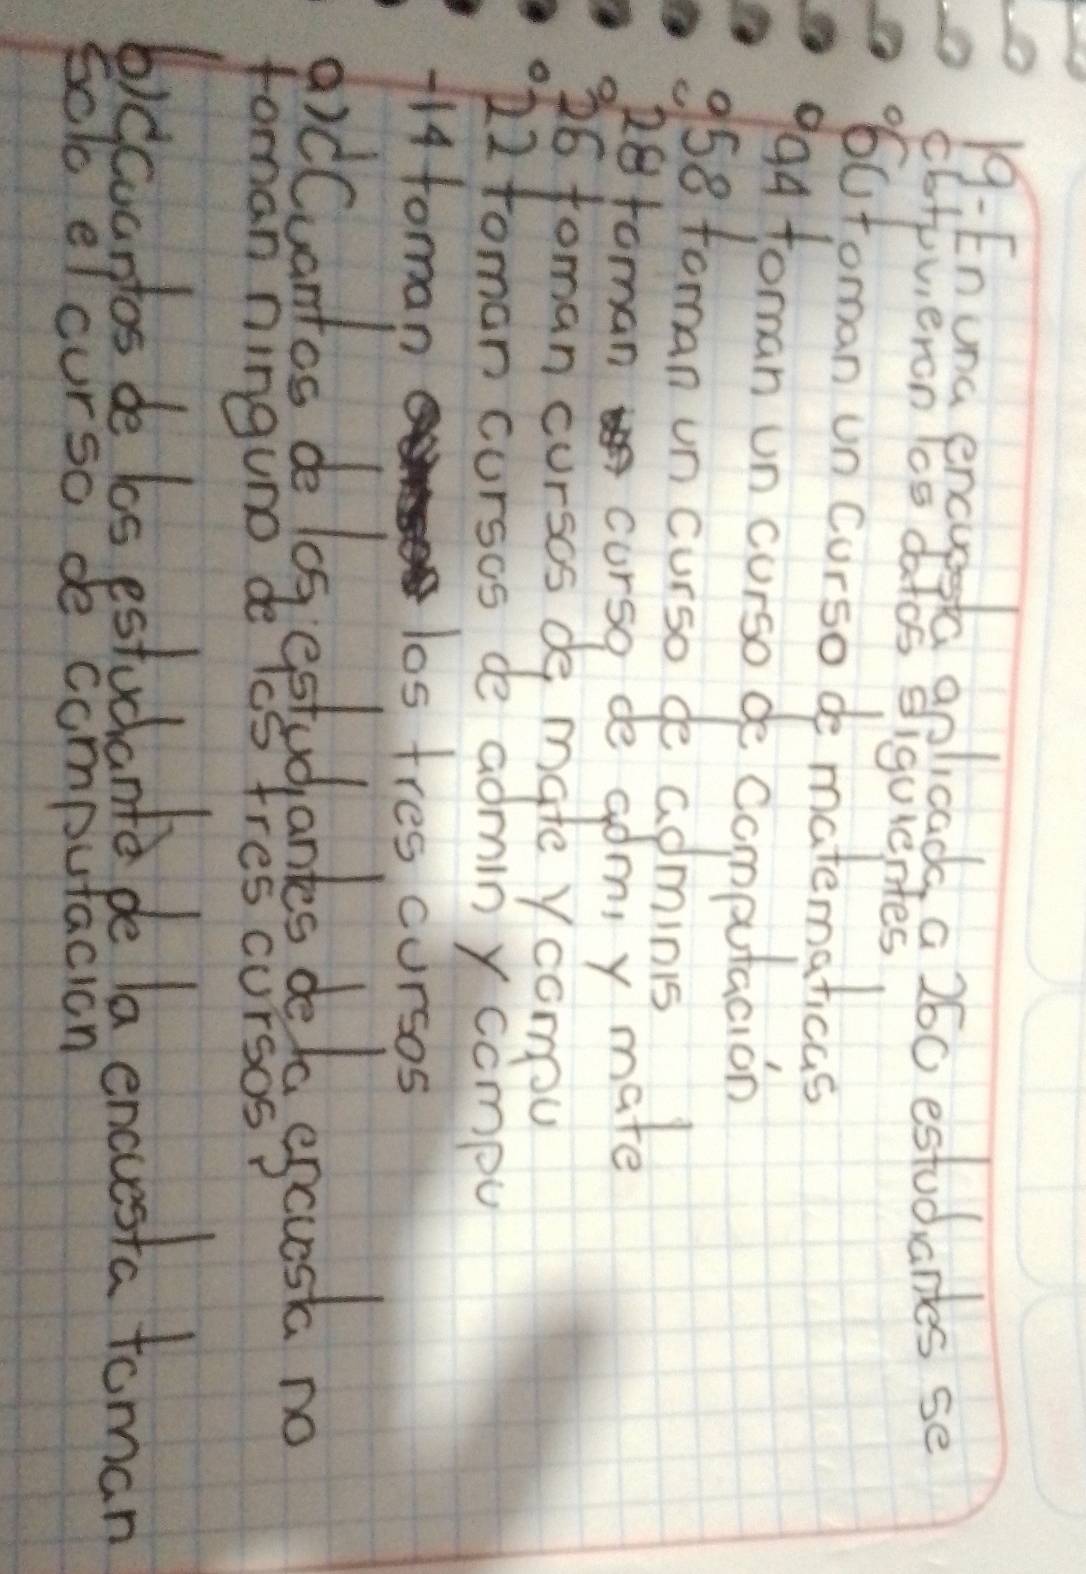 19.- En una encuesta aplicada a 260 estudiantes se
obtuvieron los datos siguientes
° 60 toman un curso de matematicas
° 94 toman un curso de Computación
° 58 toman un curso de adminis
° 28 toman curso de admi y mate
° 26 toman cursos de mate y compu
° 22 toman cursos de admin y compu
- 14 toman los tres cursos
a) ¿Cuantos de los estudiantes de la encuesta no
toman ninguno de los tres cursos?
b) ¿Cuantos de los estudiante de la encuesta toman
solo el curso de computacion